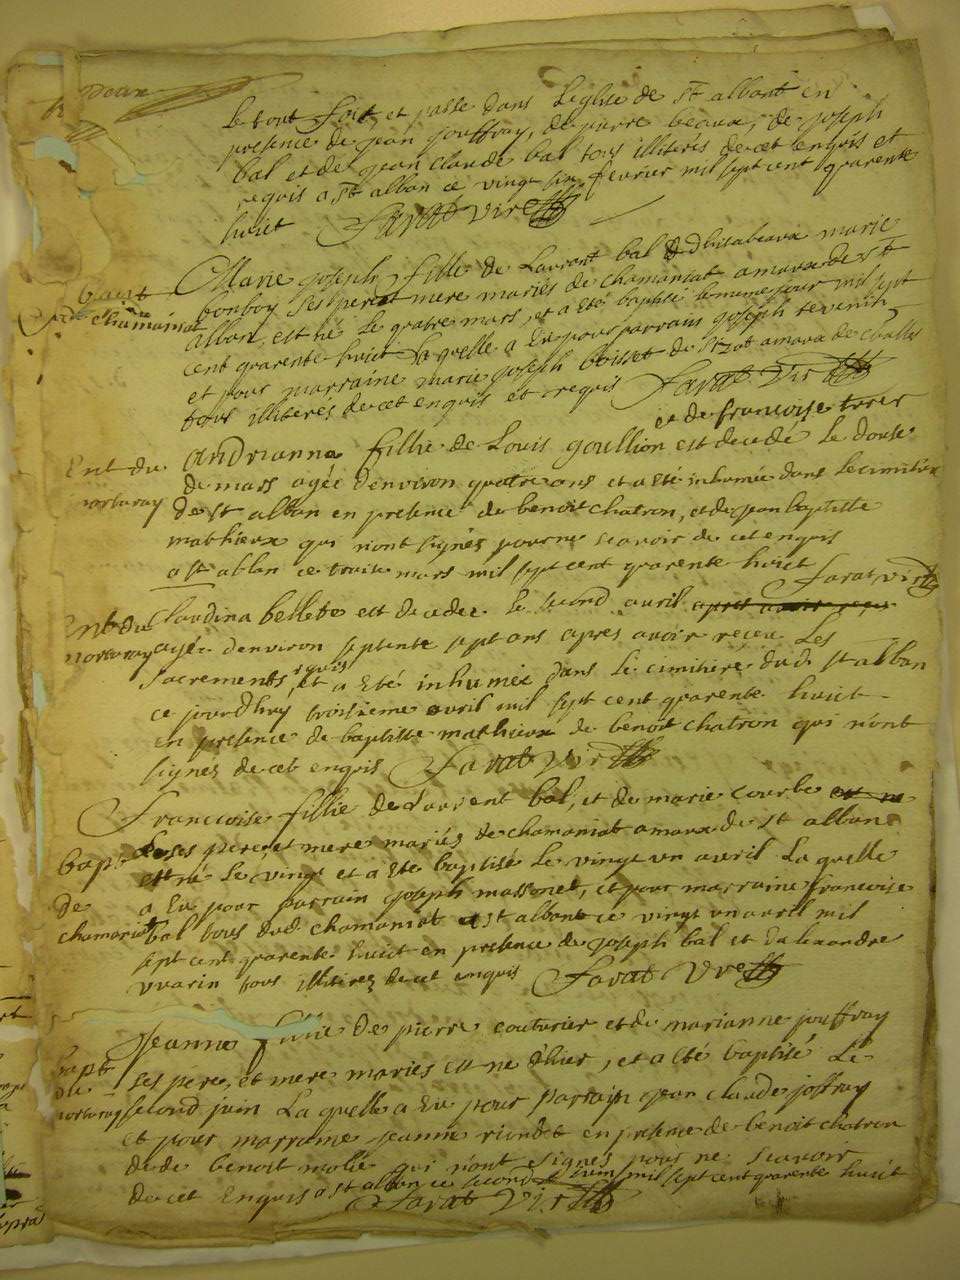 Deux
le tout fait et passé dans Leglise de St alban en
presence de jean jouffray, de pierre beaux, de joseph
bal et de jean claude bal tous illiteres de cet enquis et
requis a St alban ce vingt six fevrier mil sept cent quarente
huict Favat vire
bapt
de chamaniat
Marie joseph fillie de Laurent bal marie
bonboy ses pere et mere mariés de chamaniat amaux de St
alban, est né Le quatre mars, et a eté baptisé le meme jour mil sept
cent quarente huict Laquelle a Eu pour parrain joseph
et pour marraine marie joseph de amaux de
tous illiterés de cet enquis et requis Favat Vire
et de francoise
Ent du
morturay
andrianna fillie de Louis goullion est decedé Le douse
de mars agée d'environ quatre ans et a eté inhumée dans Le cimitiere
de St alban en presence de benoit chatron, et de jean baptiste
mathieux qui n'ont signés pour ne scavoir de cet enquis
a St alban ce treise mars mil sept cent quarente huict
Favat vire
Ent du
morturay
Claudina bellet est decedee Le second avril apres avoir receu
agée d'environ septente sept ans apres avoir receu Les
sacrements, et a Eté inhumée dans Le cimitiere dud. St alban
ce jourdhuy troisieme avril mil sept cent quarente huict
en presence de baptiste mathieux de benoit chatron qui n'ont
signés de cet enquis Favat Vire
bapt
de
chamaniat
Francoise fillie de Laurent bal, et de marie courbe est ne
ses pere, et mere mariés de chamaniat amaux de St alban
est né Le vingt et a Eté baptisé Le vingt un avril Laquelle
a Eu pour parrain joseph massonet, et pour marraine francoise
bal tous dud. chamaniat a St alban ce vingt un avril mil
sept cent quarente huict en presence de joseph bal et
vuarin tous illiterez de cet enquis Favat Vire
bapt
du
morturay
Jeanne fillie de pierre couturier et de marianne jouffray
ses pere, et mere mariés est ne d'hier, et a eté baptisé Le
second juin Laquelle a Eu pour Parrain jean claude joffray
et pour marraine jeanne riondet en presence de benoit chatron
de de benoit molié qui n'ont signés pour ne scavoir
de cet Enquis a St alban ce second juin mil sept cent quarente huict
Favat Vire